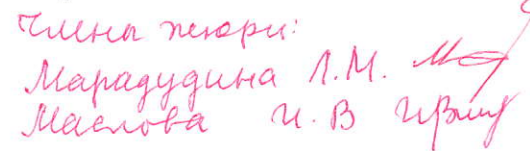 Члены жюри:
Марадудина Л.М.
Маслова И.В